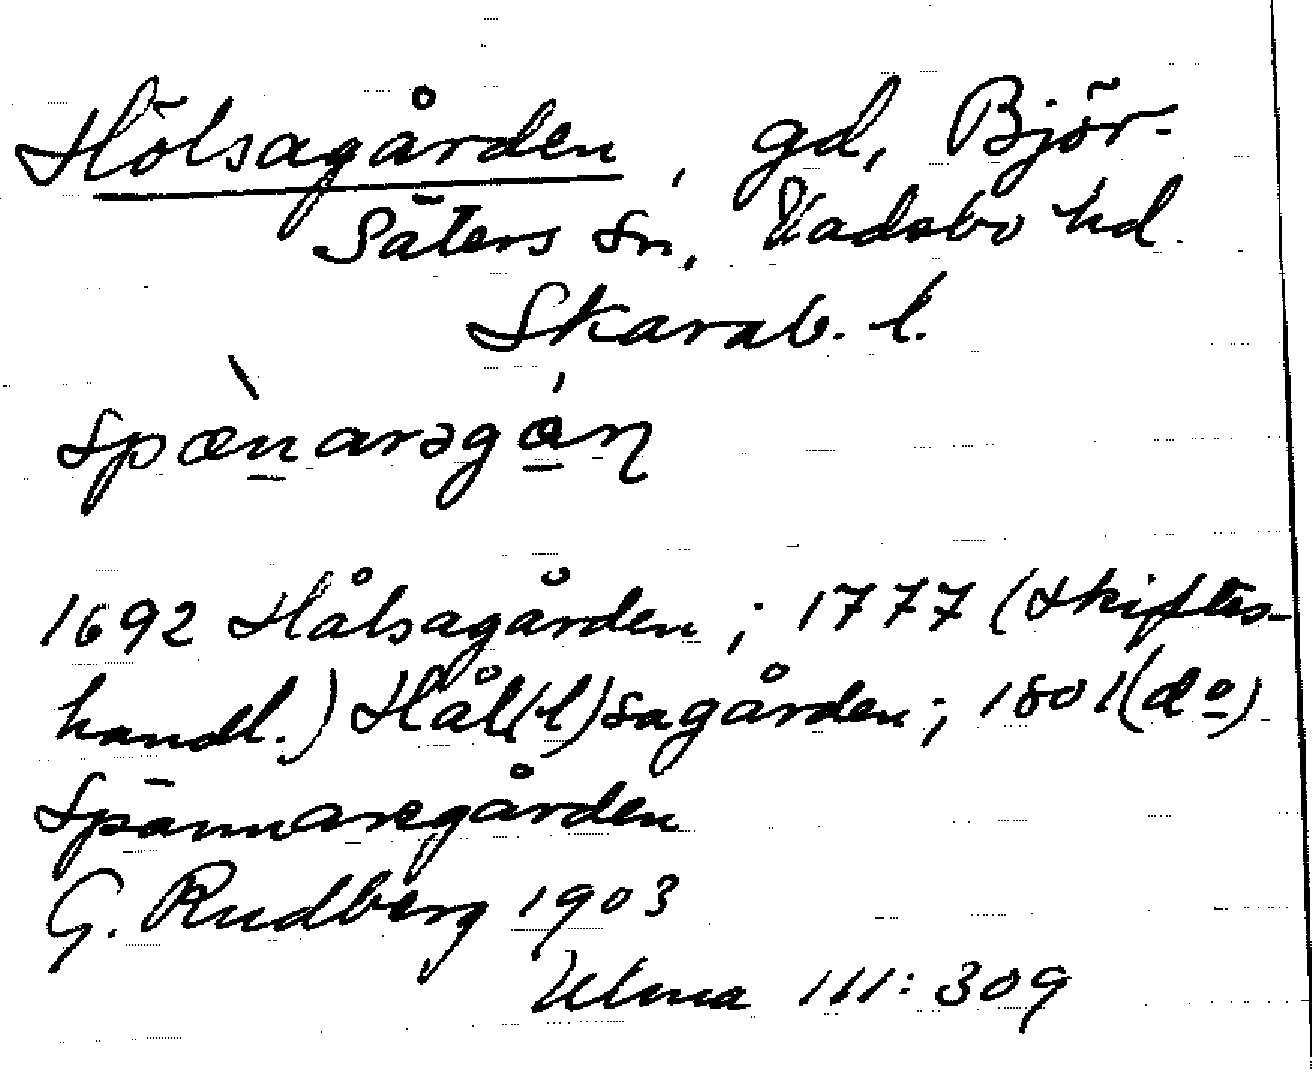 Hölsagården, gd, Björ-
säters sn, Vadsbo hd.
Skarab. l.
spæ̀narəgán
1692 Hålsagården; 1777 (skiftes-
handl.) Hål(l)sagården; 1801 (dº)
Spännaregården
G. Rudberg 1903
Ulma 111:309